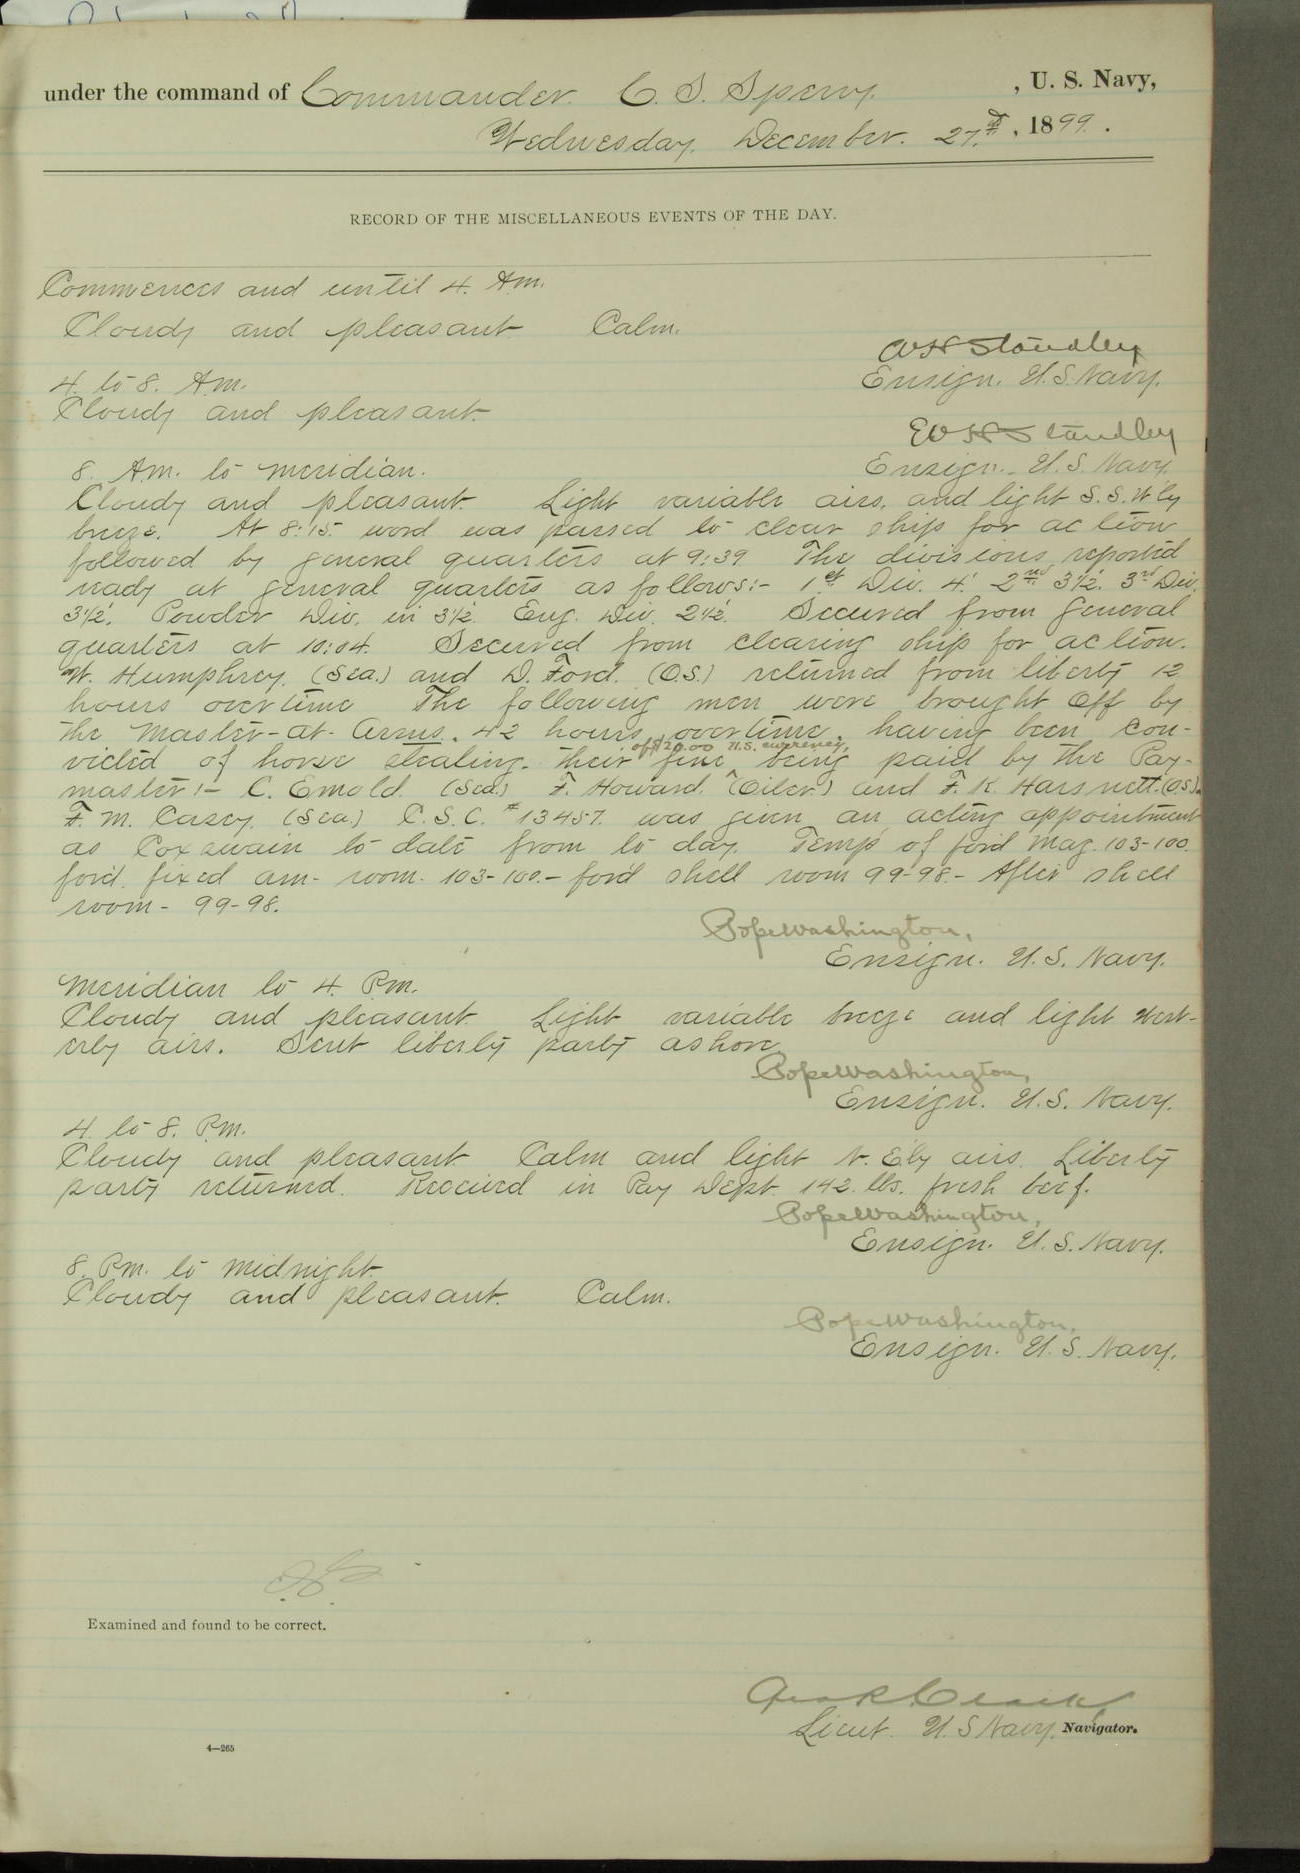 under the command of Commander. C. S. Sperry. , U. S. Navy,
Wednesday. December. 27.th , 1899.
RECORD OF THE MISCELLANEOUS EVENTS OF THE DAY.
Commences and until 4. Am.
Cloudy and pleasant Calm.
WH Standley
Ensign. U.S. Navy.
4. to 8. Am.
Cloudy and pleasant.
WH Standley
Ensign. U.S. Navy.
8. Am. to meridian.
Cloudy and pleasant. Light variable airs, and light S.S.W'ly
breeze. At 8:15 word was passed to clear ship for action
followed by general quarters at 9:39 The divisions reported
ready at general quarters as follows:- 1st Div. 4'. 2nd 3½'. 3rd Div.
3½'. Powder Div. in 3½'. Eng. Div. 2½'. Secured from general
quarters at 10:04. Secured from clearing ship for action.
W. Humphrey. (Sea.) and D. Ford. (O.S.) returned from liberty 12
hours overtime The following men were brought off by
the Master-at-Arms. 42 hours overtime, having been con-
victed of horse stealing. their fine of $20.00 U.S. currency, being paid by the Pay-
master:- C. Emold. (Sea.) F. Howard. (Oiler.) and F. K. Harsnett. (O.S).
F. M. Casey. (Sea.) C.S.C. #13457. was given an acting appointment
as Coxswain to date from to day. Temp of for'd mag. 103-100.
for'd. fixed am- room. 103-100.- for'd shell room 99-98.- After shell
room - 99-98.
Pope Washington,
Ensign. U.S. Navy.
Meridian to 4. Pm.
Cloudy and pleasant. Light variable breeze and light West-
erly airs. Sent liberty party ashore
Pope Washington,
Ensign. U.S. Navy.
4. to 8. Pm.
Cloudy and pleasant. Calm and light N. E'ly airs. Liberty
party returned. Received in Pay Dept. 142. lbs. fresh beef.
Pope Washington,
Ensign. U.S. Navy.
8. Pm. to midnight.
Cloudy and pleasant. Calm.
Pope Washington,
Ensign. U.S. Navy.
Examined and found to be correct.
Geo R. Clark
Lieut. U.S Navy. Navigator.
4—265